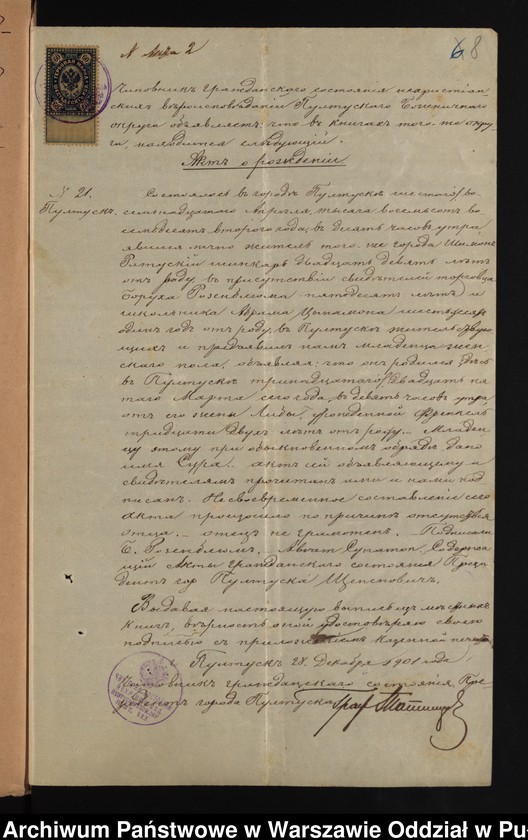 68
Чиновникъ гражданскаго состоянія нехристіан-
скихъ вѣроисповѣданій Пултускаго Божничнаго
округа объявляетъ: что въ книгахъ того-же окру-
га, находится слѣдующій:
Актъ о рожденіи
№ 21. Состоялось въ городѣ Пултускѣ шестого/во-
Пултускъ. семнадцатаго Апрѣля, тысяча восемьсотъ во-
семьдесятъ второго года, въ десять часовъ утра
явился лично житель того-же города Шимонъ
шинкарь двадцать девять лѣтъ
отъ роду, въ присутствіи свидѣтелей торговца
Боруха Розенблюма пятьдесятъ лѣтъ и
школьника Абрама шестьдесятъ
одинъ годъ отъ роду, въ Пултускѣ жительствую-
щихъ и предъявилъ намъ младенца жен-
скаго пола, объявляя: что онъ родился здѣсь
въ Пултускѣ тринадцатаго/двадцать пя-
таго Марта сего года, въ девять часовъ утра
отъ его жены Либы, урожденной Френкель
тридцати двухъ лѣтъ отъ роду. Младен-
цу этому при обыкновенномъ обрядѣ дано
имя Сура. Актъ сей объявляющему и
свидѣтелямъ прочитанъ ими и нами под-
писанъ. Несвоевременное составленіе сего
акта произошло по причинѣ отсутствія
отца. отецъ не грамотенъ. Подписали
Б. Розенблюмъ. Содержа-
щій Акты гражданскаго состоянія Прези-
дентъ гор. Пултуска
Выдавая настоящую выпись изъ
книгъ, вѣрность оной удостовѣряю своею
подписью съ приложеніемъ казенной печати
Пултускъ 28 Декабря 1901 года
Чиновникъ гражданскаго состоянія Пре-
зидентъ города Пултуска
Archiwum Państwowe w Warszawie Oddział w Pu